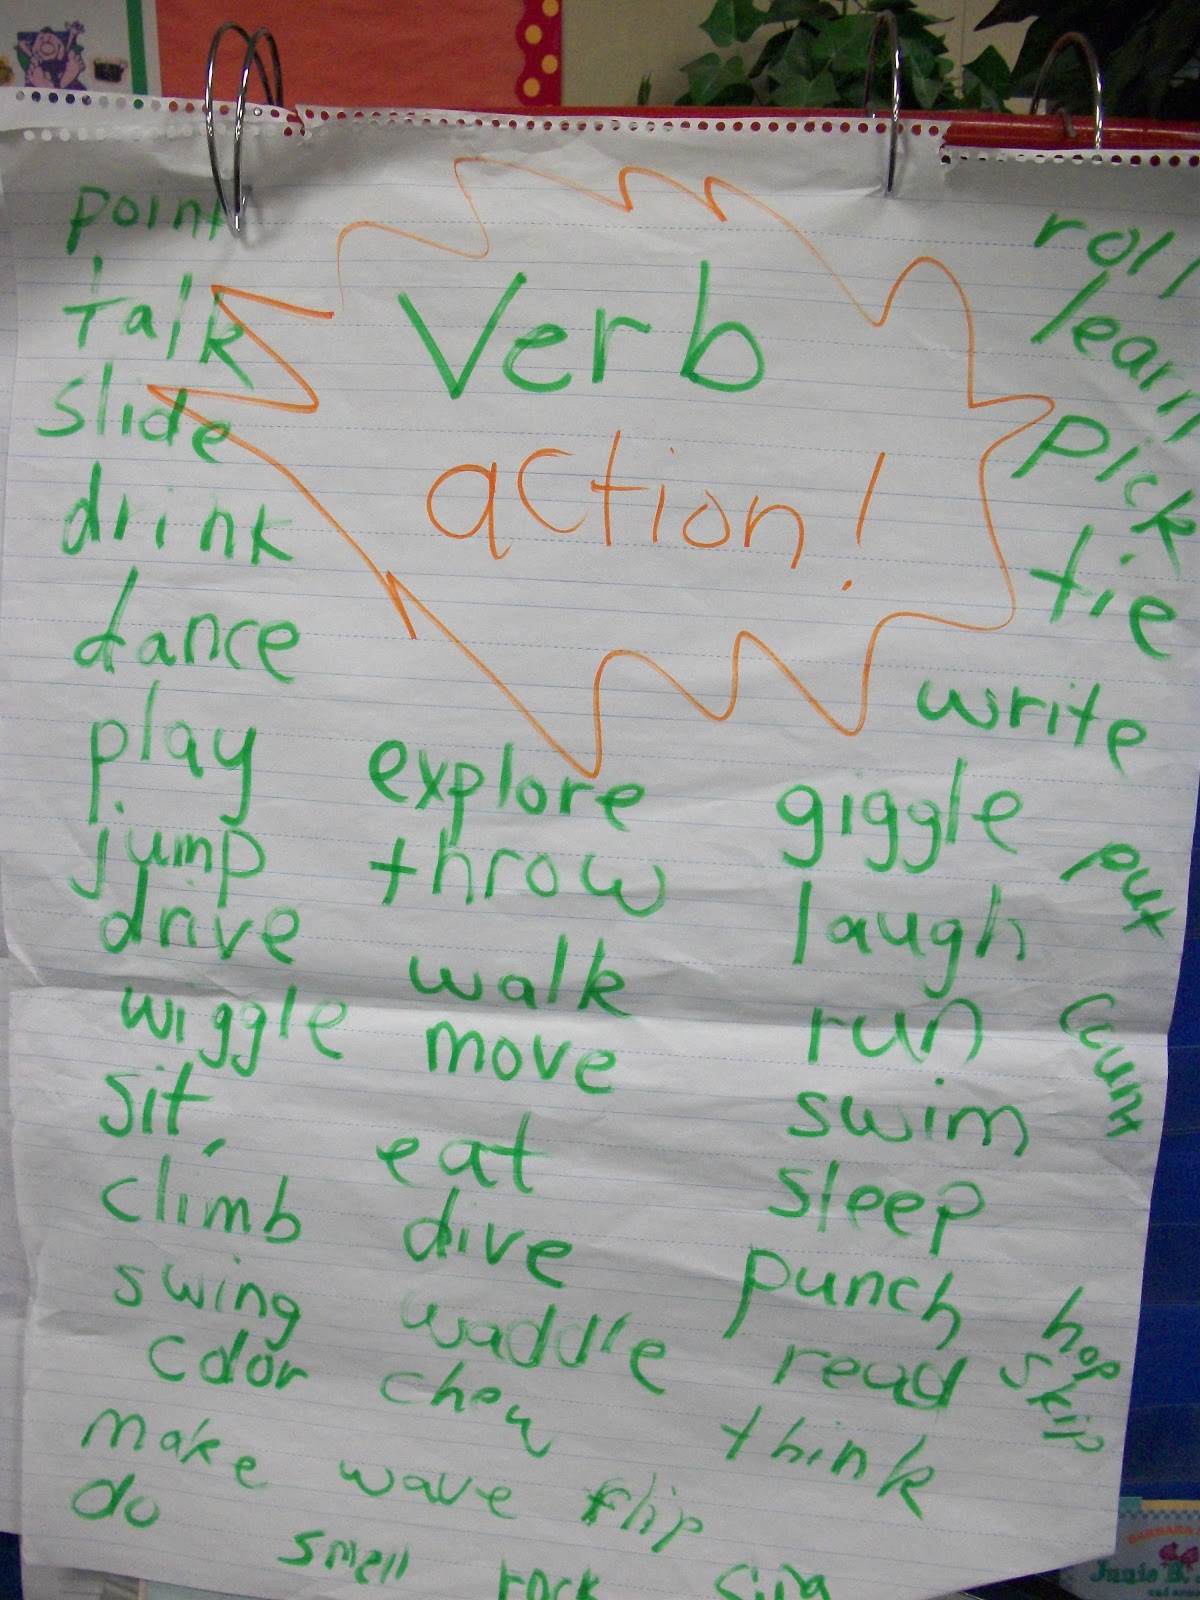 Verb
action!
point
talk
slide
drink
dance
play
jump
drive
wiggle
sit
climb
swing
color
make
do
explore
throw
walk
move
eat
dive
waddle
chew
wave flip
smell rock sing
roll
learn
pick
tie
write
giggle
laugh
run
swim
sleep
punch
read
think
put
count
hop
skip
Junie B.